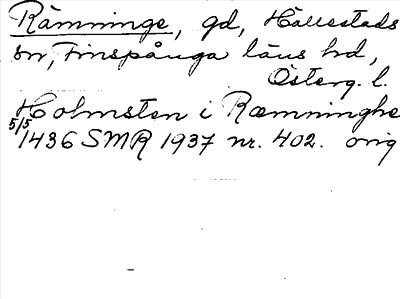 Rämninge, gd, Hällestads
sn, Finspånga läns hd,
Österg. l.
Holmsten i Ræmninghe
5/5 1436 SMR 1937 nr. 402. orig